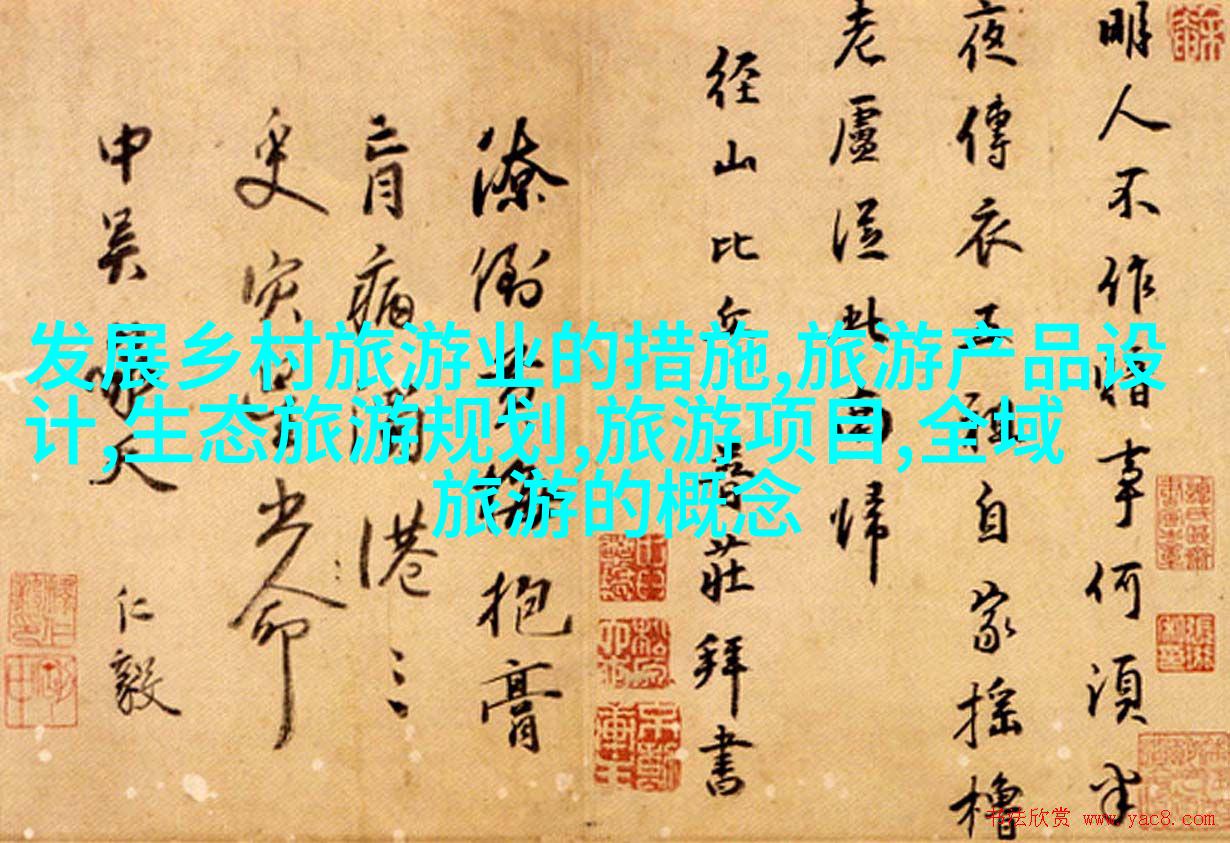 发展乡村旅游业的措施,旅游产品设
计,生态旅游规划,旅游项目,全域
旅游的概念
明人不作暗事何須半
夜傳衣五祖自家搖櫓
老盧從此南歸
径山比丘 莊拜書
潦倒 抱膏
肓病滿
命
中吴 天 仁毅
书法欣赏 www.yac8.com